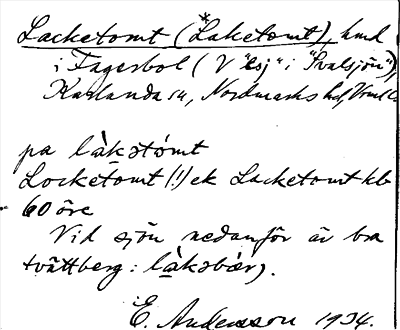 Lacketomt (*Laketomt), hmd
i Fagerbol (V "Esj" i "Svalsjön"),
Karlanda sn, Nordmarks hd, Vrml.
pa lakstomt
Locketomt (!) ek Lacketomt hb
60 öre
Vid sjön nedanför är bra
tvättberg: låksbærj.
E. Andersson 1934.